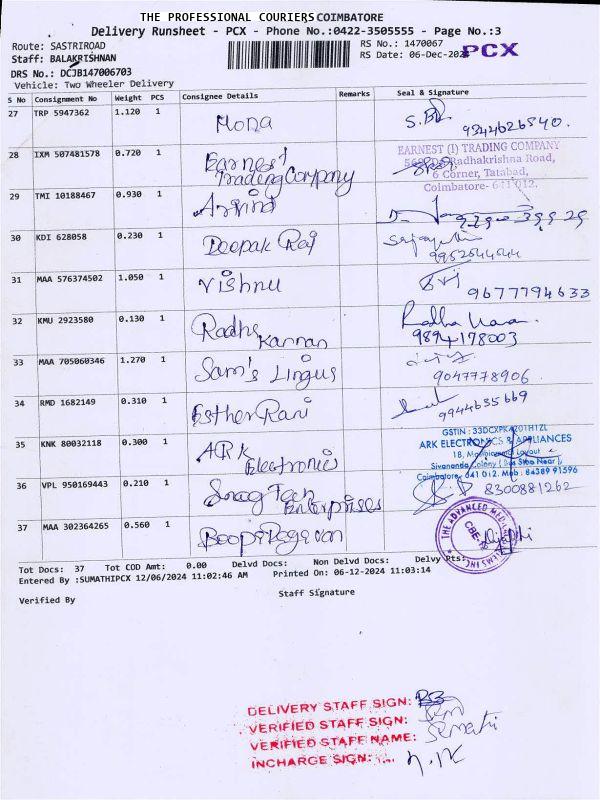 THE PROFESSIONAL COURIERS COIMBATORE
Delivery Runsheet - PCX - Phone No.:0422-3505555 - Page No.:3
Route: SASTRIROAD
RS No.: 1470067
Staff: BALAKRISHNAN
RS Date: 06-Dec-202
PCX
DRS No.: DCJB147006703
Vehicle: Two Wheeler Delivery
S No Consignment No Weight PCS Consignee Details Remarks Seal & Signature
27 TRP 5947362 1.120 1 Mona
9344626540.
28 IXM 507481578 0.720 1 Earnest Trading Company
EARNEST (I) TRADING COMPANY
Radhakrishna Road,
6 Corner, Tatabad,
Coimbatore- 641 012.
29 TMI 10188467 0.930 1 Arvind
30 KDI 628058 0.230 1 Deepak Raj
9952544544
31 MAA 576374502 1.050 1 Vishnu
9677794633
32 KMU 2923580 0.130 1 Radha Kannan
9894178003
33 MAA 705060346 1.270 1 Sam's Lingus
9047778906
34 RMD 1682149 0.310 1 Esther Rani
9944635669
35 KNK 80032118 0.300 1 ARK Electronic
ARK ELECTRONICS & APPLIANCES
Coimbatore- 641 012. Mob : 84389 91596
36 VPL 950169443 0.210 1 Snag Tech Enterprises
8300881262
37 MAA 302364265 0.560 1
THE ADVANCED
CBE-
Tot Docs: 37 Tot COD Amt: 0.00 Delvd Docs: Non Delvd Docs: Delvy Pts:
Entered By :SUMATHIPCX 12/06/2024 11:02:46 AM Printed On: 06-12-2024 11:03:14
Verified By
Staff Signature
DELIVERY STAFF SIGN:
VERIFIED STAFF SIGN:
VERIFIED STAFF NAME:
INCHARGE SIGN: